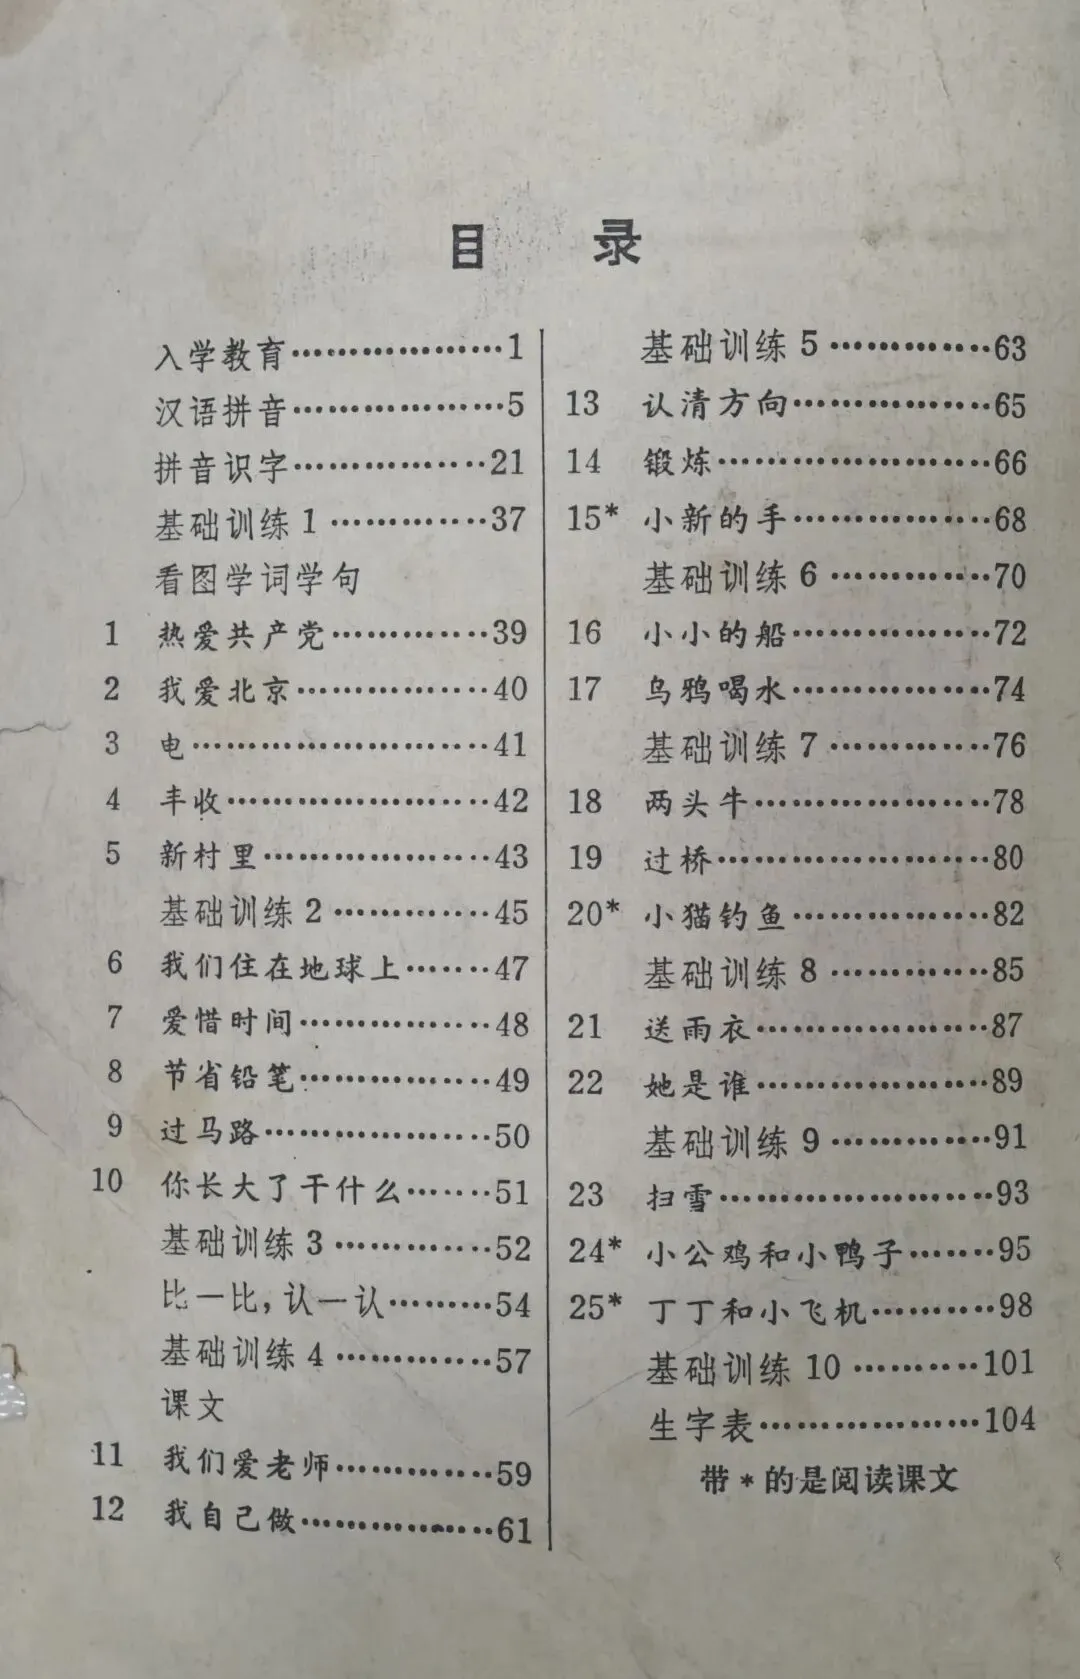 目 录
入学教育………………1
汉语拼音………………5
拼音识字………………21
基础训练1……………37
看图学词学句
1 热爱共产党……………39
2 我爱北京………………40
3 电………………………41
4 丰收……………………42
5 新村里…………………43
基础训练2……………45
6 我们住在地球上………47
7 爱惜时间………………48
8 节省铅笔………………49
9 过马路…………………50
10 你长大了干什么………51
基础训练3……………52
比一比,认一认…………54
基础训练4……………57
课文
11 我们爱老师……………59
12 我自己做………………61
基础训练5……………63
13 认清方向………………65
14 锻炼……………………66
15* 小新的手………………68
基础训练6……………70
16 小小的船………………72
17 乌鸦喝水………………74
基础训练7……………76
18 两头牛…………………78
19 过桥……………………80
20* 小猫钓鱼………………82
基础训练8……………85
21 送雨衣…………………87
22 她是谁…………………89
基础训练9……………91
23 扫雪……………………93
24* 小公鸡和小鸭子………95
25* 丁丁和小飞机…………98
基础训练10…………101
生字表…………………104
带*的是阅读课文